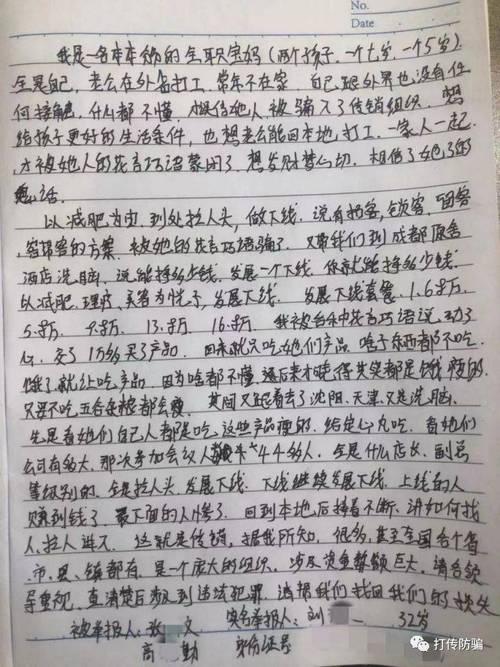 No.
Date
我是一名本本份的全职宝妈(两个孩子,一个七岁,一个5岁)
全是自己,老公在外打工,常年不在家,自己跟外界也没有任
何接触,什么都不懂,他人被骗入了传销组织,想
给孩子更好的生活条件,也想老公能回本地打工,一家人一起,
才被她人的花言巧语蒙闭了,想发财梦心切,相信了她们的
鬼话。
以减肥为由,到处拉人头,做下线,说有拓客,锁客,留客
客带客的方案,被她的花言巧语骗了,又带我们到成都
酒店洗脑,说能挣多少钱,发展一个下线,你就能挣多少钱,
以减肥,理疗,美容为幌子,发展下线,发展下线套餐,1.6万,
5.8万,9.8万,13.8万,16.8万,我被花言巧语说动了
心,交了1万多买了产品,回来就只吃她们产品,啥子东西都不吃
饿了就让吃产品,因为啥都不懂,后来才晓得其实都是饿瘦的
只要不吃五谷杂粮都会瘦,其间又去了沈阳,天津,又是洗脑,
先是看她们自己人都是吃这些产品瘦的,给定心丸吃,看她们
公司有多大,那次参加会议人44多人,全是什么店长,副总
等级别的,全是拉人头,发展下线,下线继续发展下线,上线的人
赚到钱了,最下面的人惨了,回到本地后接着不断讲如何找
人,拉人进入,这就是传销,据我所知,很多,甚至全国各个省
市,县,镇都有,是一个庞大的组织,涉及资金数额巨大,请各领
导重视,查清楚后涉及到违法犯罪,请帮我们找回我们的损失
被举报人:张 文 实名举报人:刘 32岁
高 勤 身份证号
打传防骗